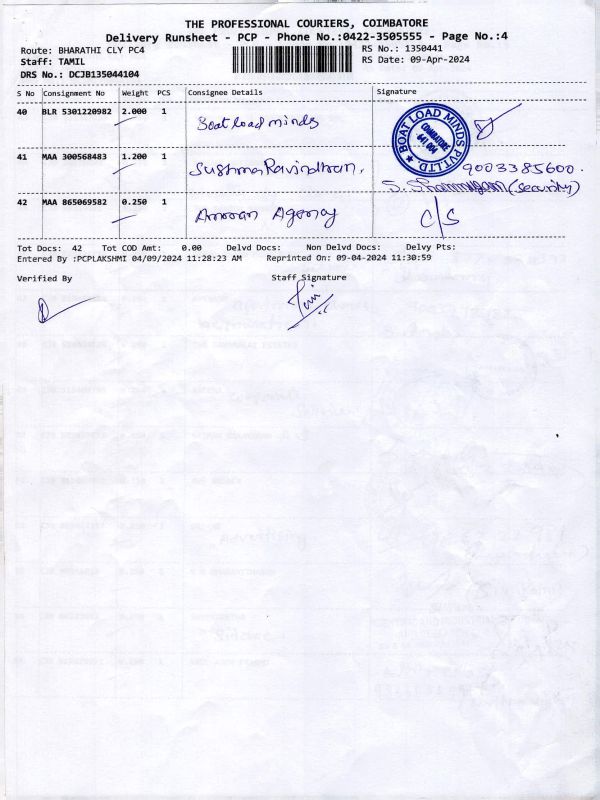 THE PROFESSIONAL COURIERS, COIMBATORE
Delivery Runsheet - PCP - Phone No.:0422-3505555 - Page No.:4
Route: BHARATHI CLY PC4
Staff: TAMIL
DRS No.: DCJB135044104
RS No.: 1350441
RS Date: 09-Apr-2024
S No Consignment No Weight PCS Consignee Details Signature
40 BLR 5301220982 2.000 1 Boat load minds
BOAT LOAD MINDS PVT.LTD COIMBATORE 641 004
41 MAA 300568483 1.200 1 Sushma Ravindhran. 9003385600.
S. Shanmugam (security)
42 MAA 865069582 0.250 1 Amman Agency C/S
Tot Docs: 42 Tot COD Amt: 0.00 Delvd Docs: Non Delvd Docs: Delvy Pts:
Entered By :PCPLAKSHMI 04/09/2024 11:28:23 AM Reprinted On: 09-04-2024 11:30:59
Verified By Staff Signature